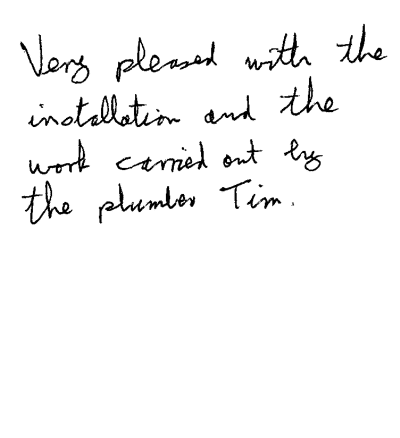 Very pleased with the
installation and the
work carried out by
the plumber Tim.